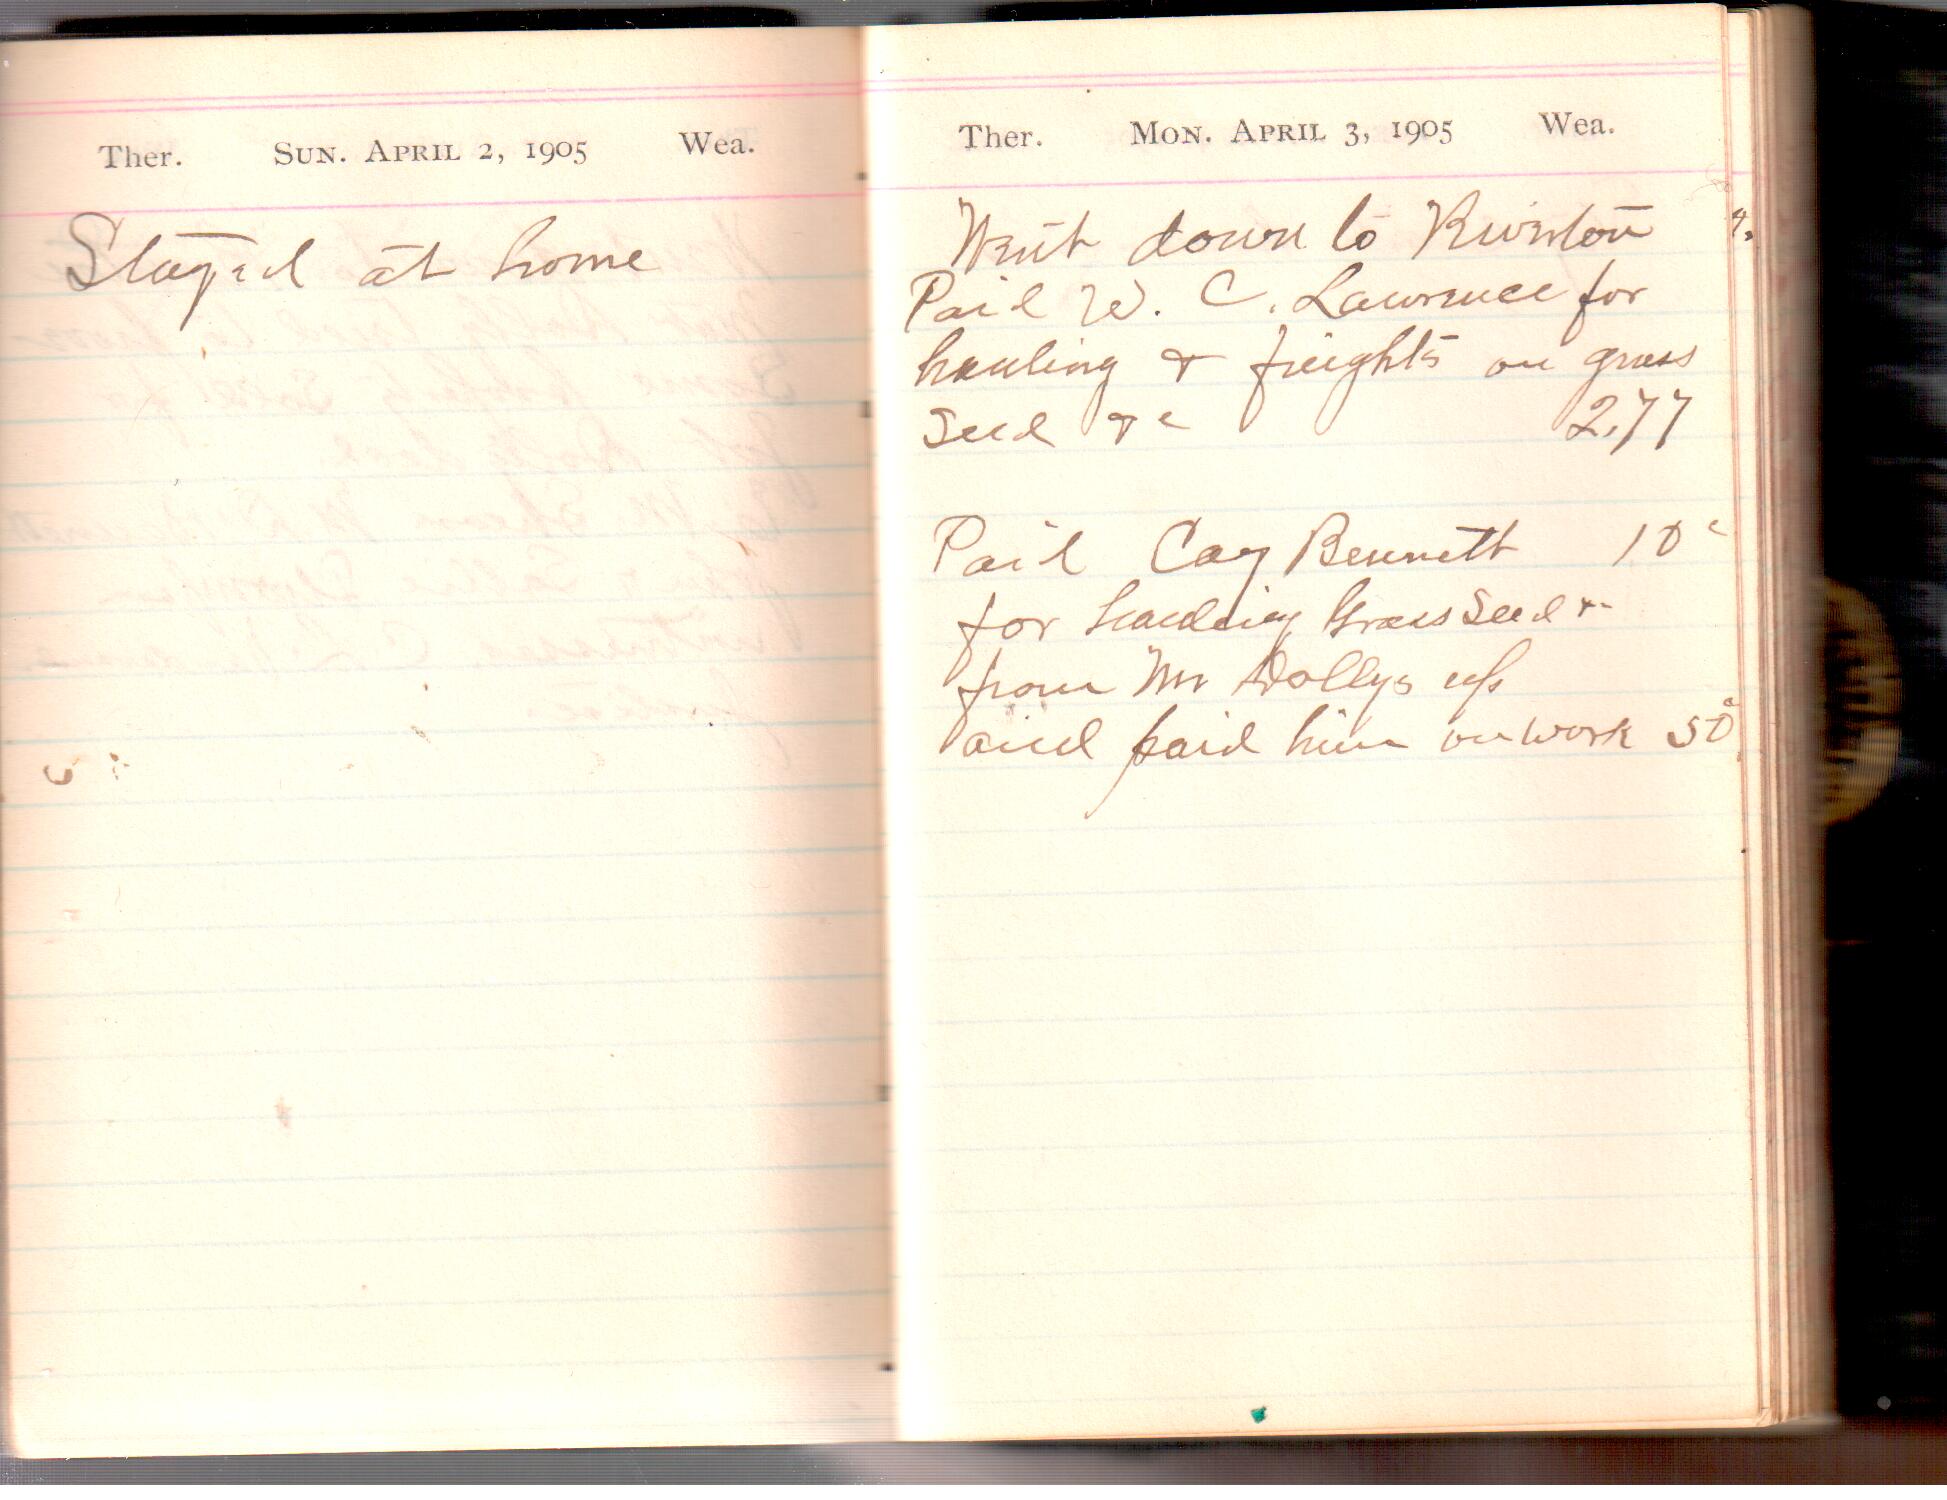 Ther. Sun. April 2, 1905 Wea.
Stayed at home
Ther. Mon. April 3, 1905 Wea.
Went down to Riverton
Paid W. C. Lawrence for
hauling & freights on grass
Seed &c 2.77
Paid Cay Bennett 10c
for hauling Grass Seed &
from Mr Dollys up
and paid him on work 50c